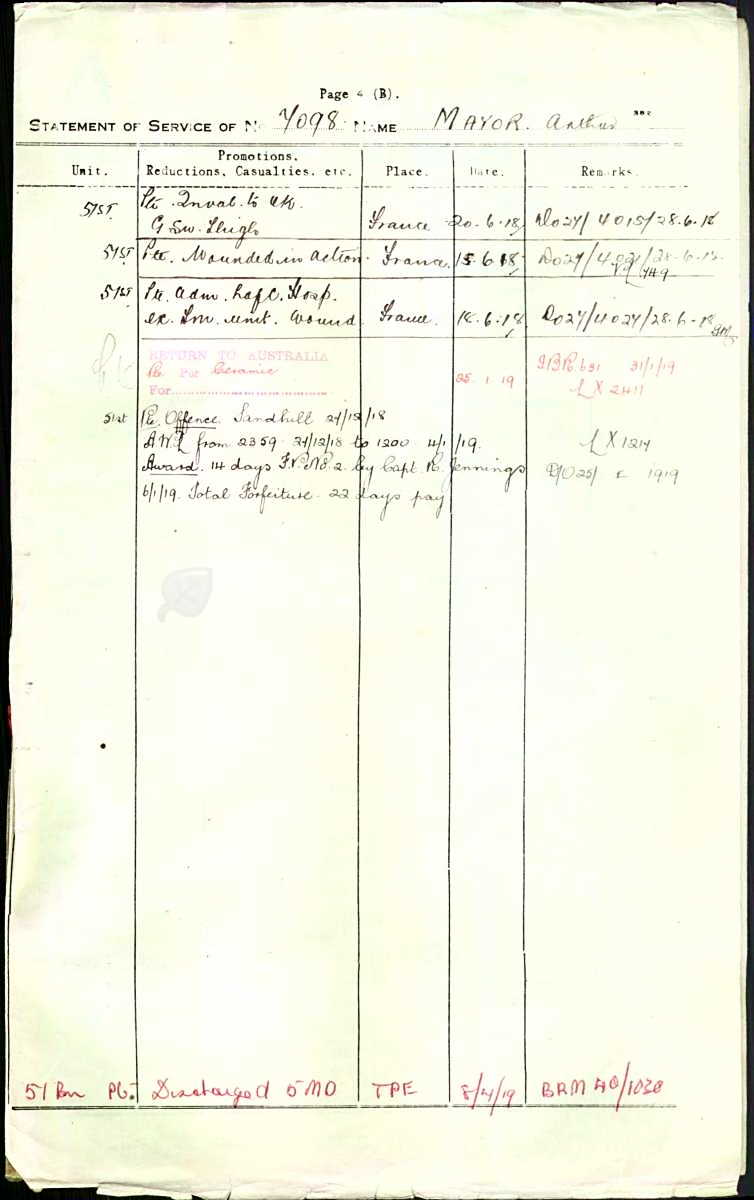 Page 4 (B).
STATEMENT OF SERVICE OF No 7098 NAME MAYOR. Arthur
Unit. Promotions, Reductions, Casualties, etc. Place. Date. Remarks.
51ST Pte. Inval. to UK.
G.S.W. Thigh France 20.6.18 DO27/4015/28.6.18
51ST Pte. Wounded in action. France. 15.6.18 DO27/4021/28.6.18
749
51st Pte adm. Hosp.
ex. unit. Wound France. 18.6.18 DO27/4027/28.6.18
RETURN TO AUSTRALIA
Per Ceramic 25.1.19 31/1/19
For LX 2411
51st Pte. Offence. Sandhill 27/12/18
A.W.L from 2359 27/12/18 to 1200 4/1/19. LX1217
Award. 14 days F.P. No. 2. by Capt R. Jennings 1919
6/1/19. Total Forfeiture. 22 days pay
51 Bn Pte. Discharged 5 MD TPE 8/4/19 BRM 40/1030